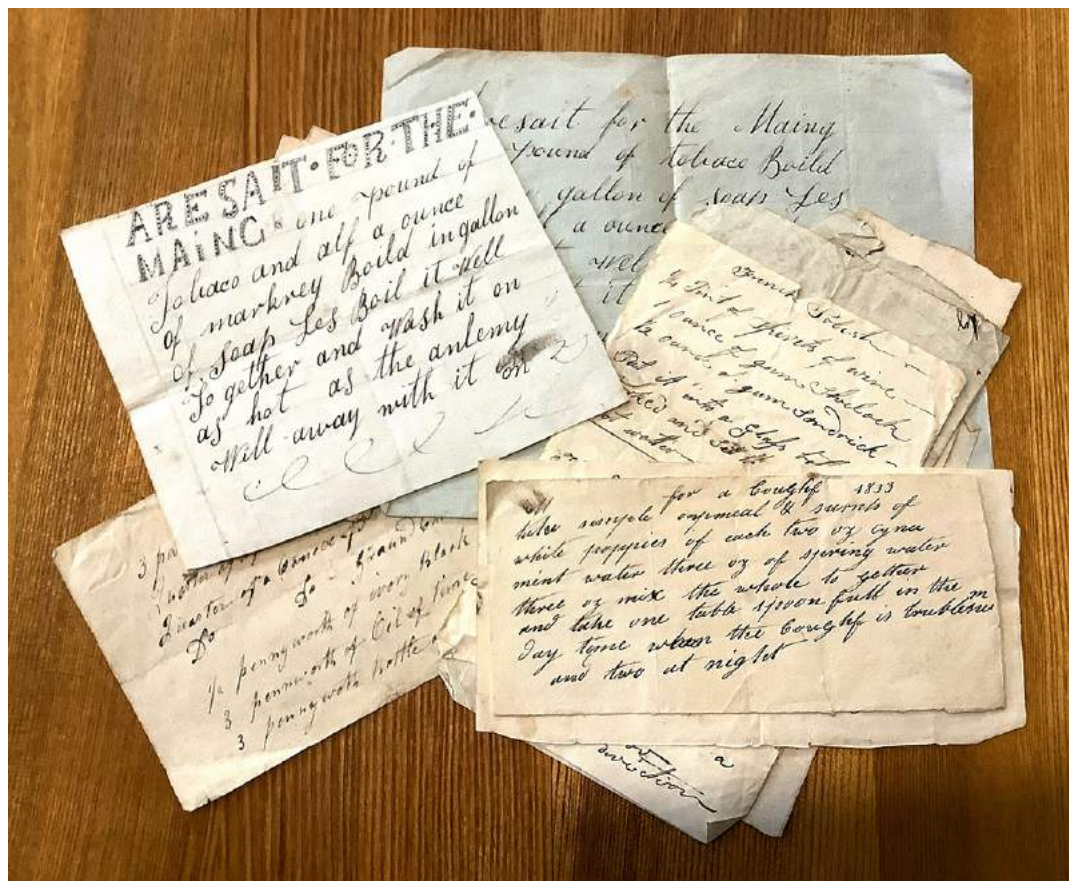 ARE SAIT·FOR·THE·
MAiNG one pound of
Tobaco and alf a ounce
of markrey Boild in gallon
of soap Les Boil it Well
To gether and Wash it on
as hot as the anlemy
Will away with it
esait for the Maing
pound of tobaco Boild
gallon of soap Les
a ounce
Wel
it
French Polish
Pint of Spirits of wine
1 ounce of gum Shelack
ounce gum Sandrick
Put it into a Glass
and
water
for a Coughf 1833
take simple oxymeal & surrits of
white poppies of each two oz cyna
ment water three oz of spring water
three oz mix the whole to gether
and take one table spoon full in the
day time when the Coughf is trublesum
and two at night
3
Quarter of a ounce
Do Ground
Do
1/2 pennyworth of ivory Black
3 pennworth of Oil of
3 pennyworth bottle
a